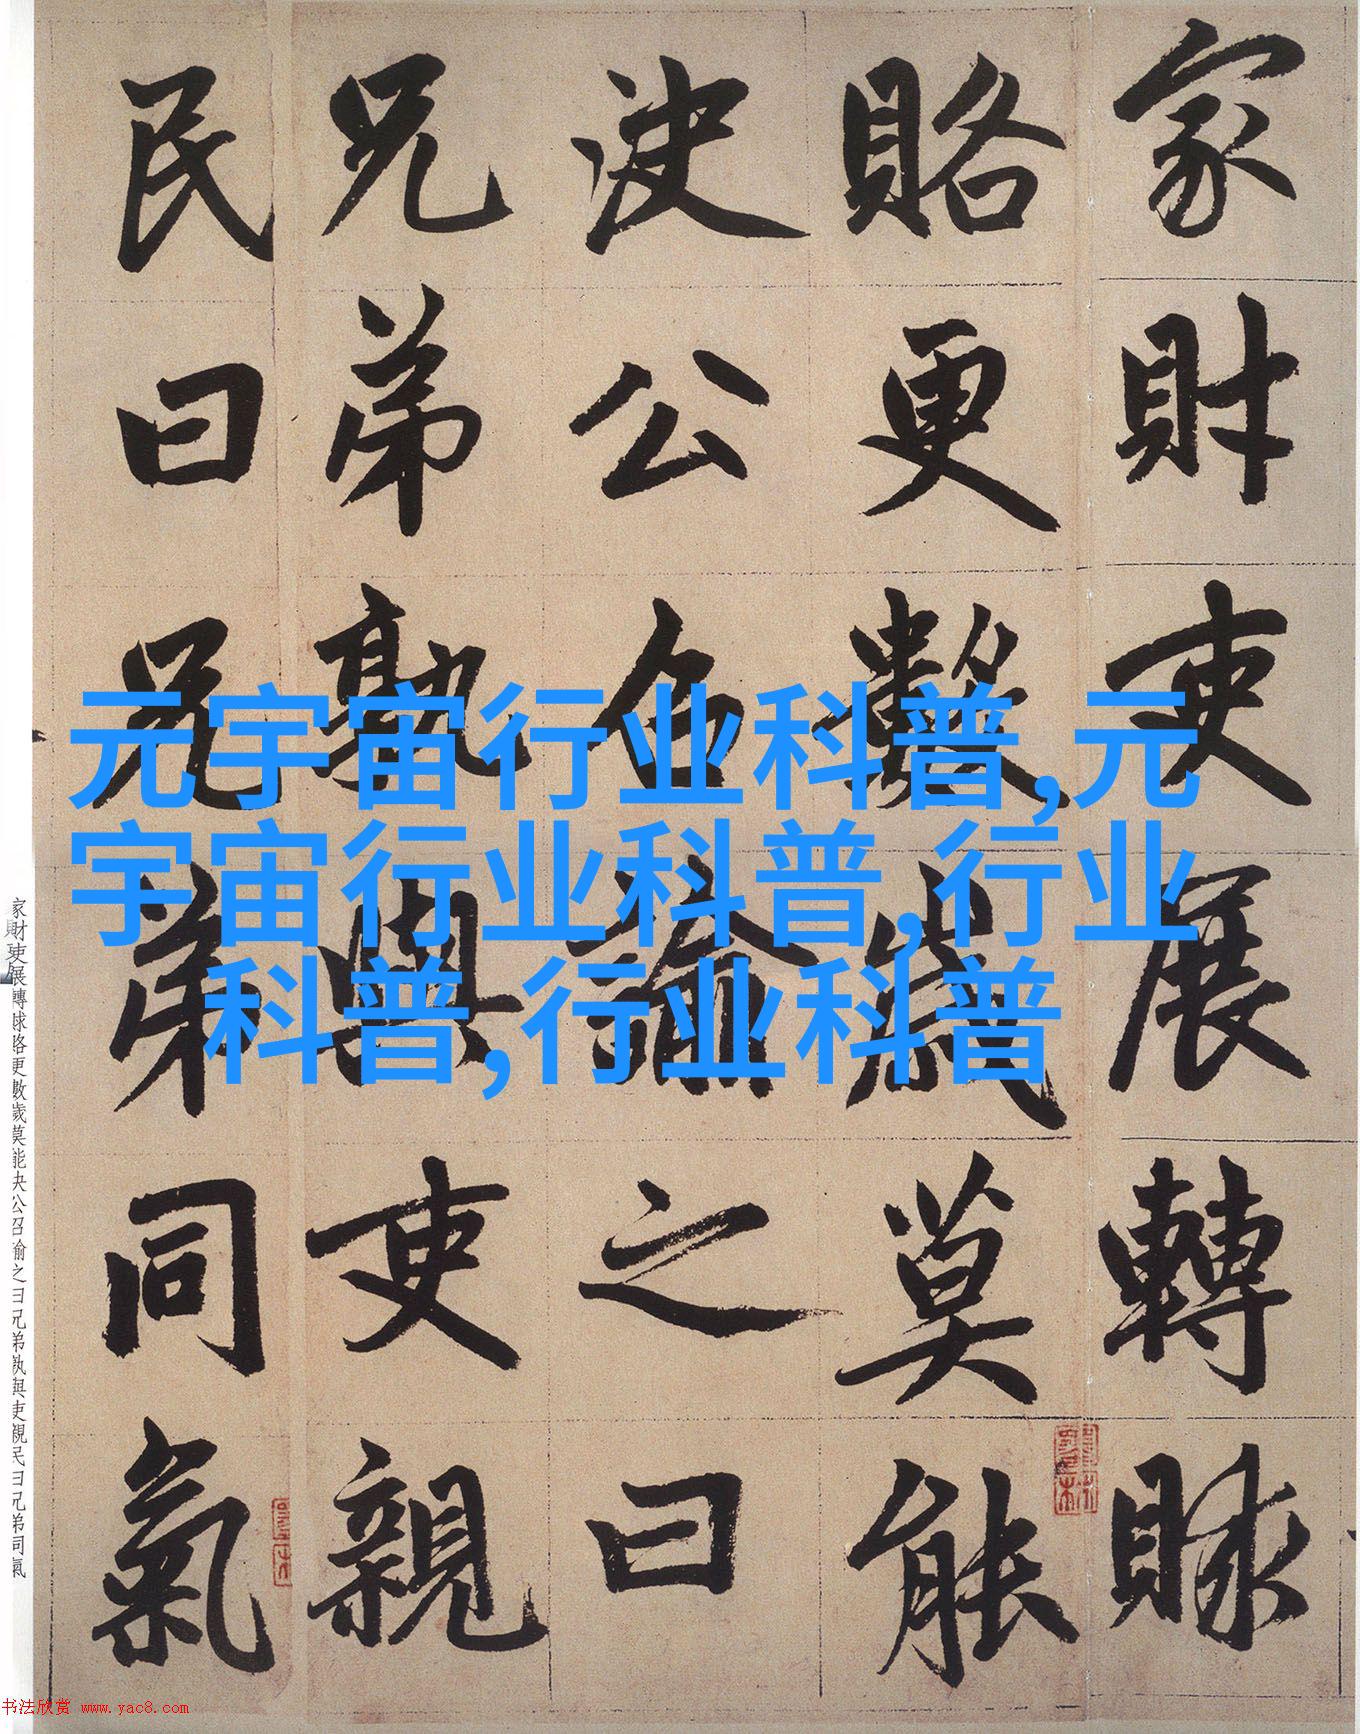 家財吏展轉賕
賂更數歲莫能
決公召諭之曰
兄弟孰與吏親
民曰兄弟同氣
元宇宙行业科普,元
宇宙行业科普,行业
科普,行业科普
家財吏展轉賕賂更數歲莫能决公召諭之曰兄弟孰與吏親民曰兄弟同氣
书法欣赏 www.yac8.com